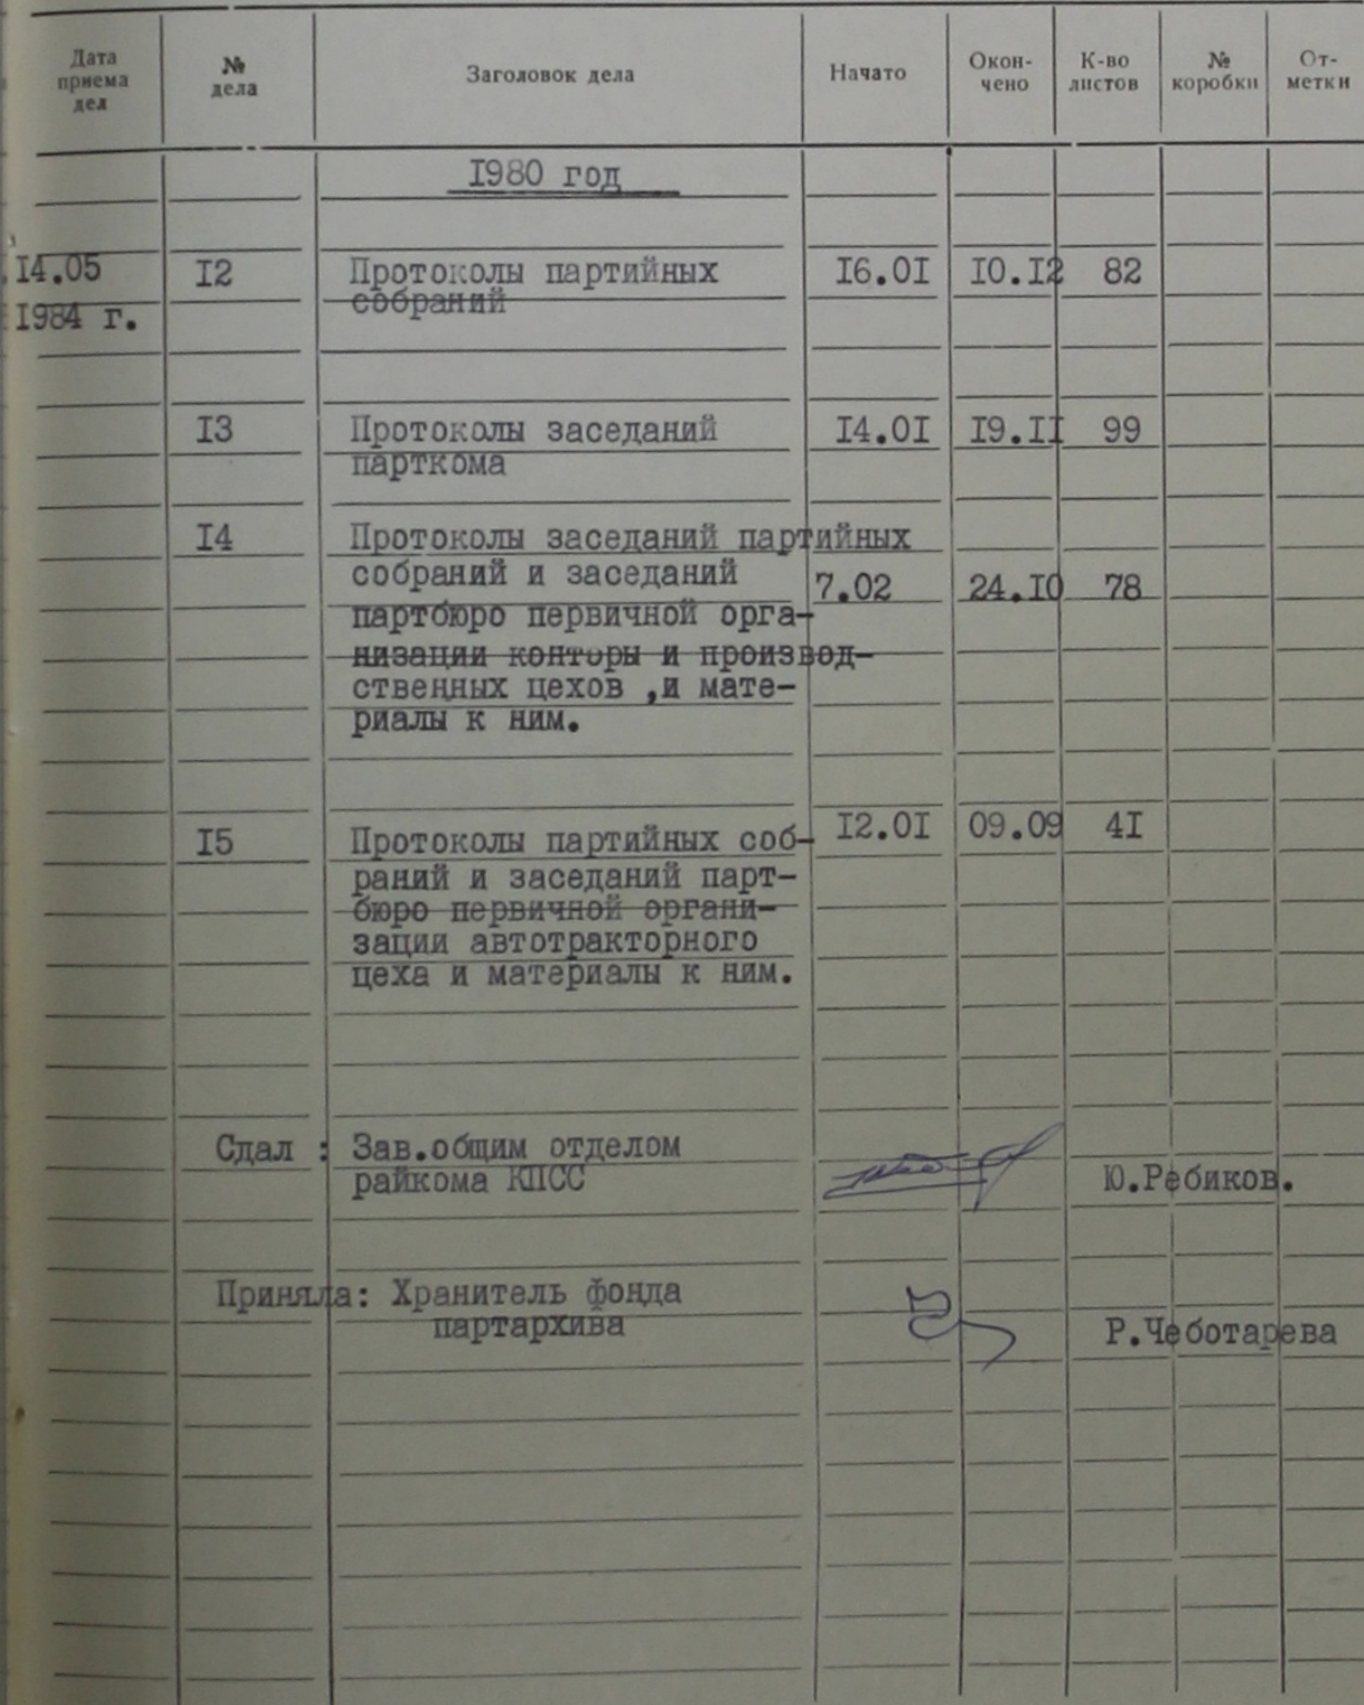 Дата приема дел № дела Заголовок дела Начато Окон- чено К-во листов № коробки От- метки
1980 год
14.05 12 Протоколы партийных 16.01 10.12 82
собраний
1984 г.
13 Протоколы заседаний 14.01 19.11 99
парткома
14 Протоколы заседаний партийных
собраний и заседаний 7.02 24.10 78
партбюро первичной орга-
низации конторы и производ-
ственных цехов ,и мате-
риалы к ним.
15 Протоколы партийных соб- 12.01 09.09 41
раний и заседаний парт-
бюро первичной органи-
зации автотракторного
цеха и материалы к ним.
Сдал : Зав.общим отделом
райкома КПСС Ю.Ребиков.
Приняла: Хранитель фонда
партархива Р.Чеботарева